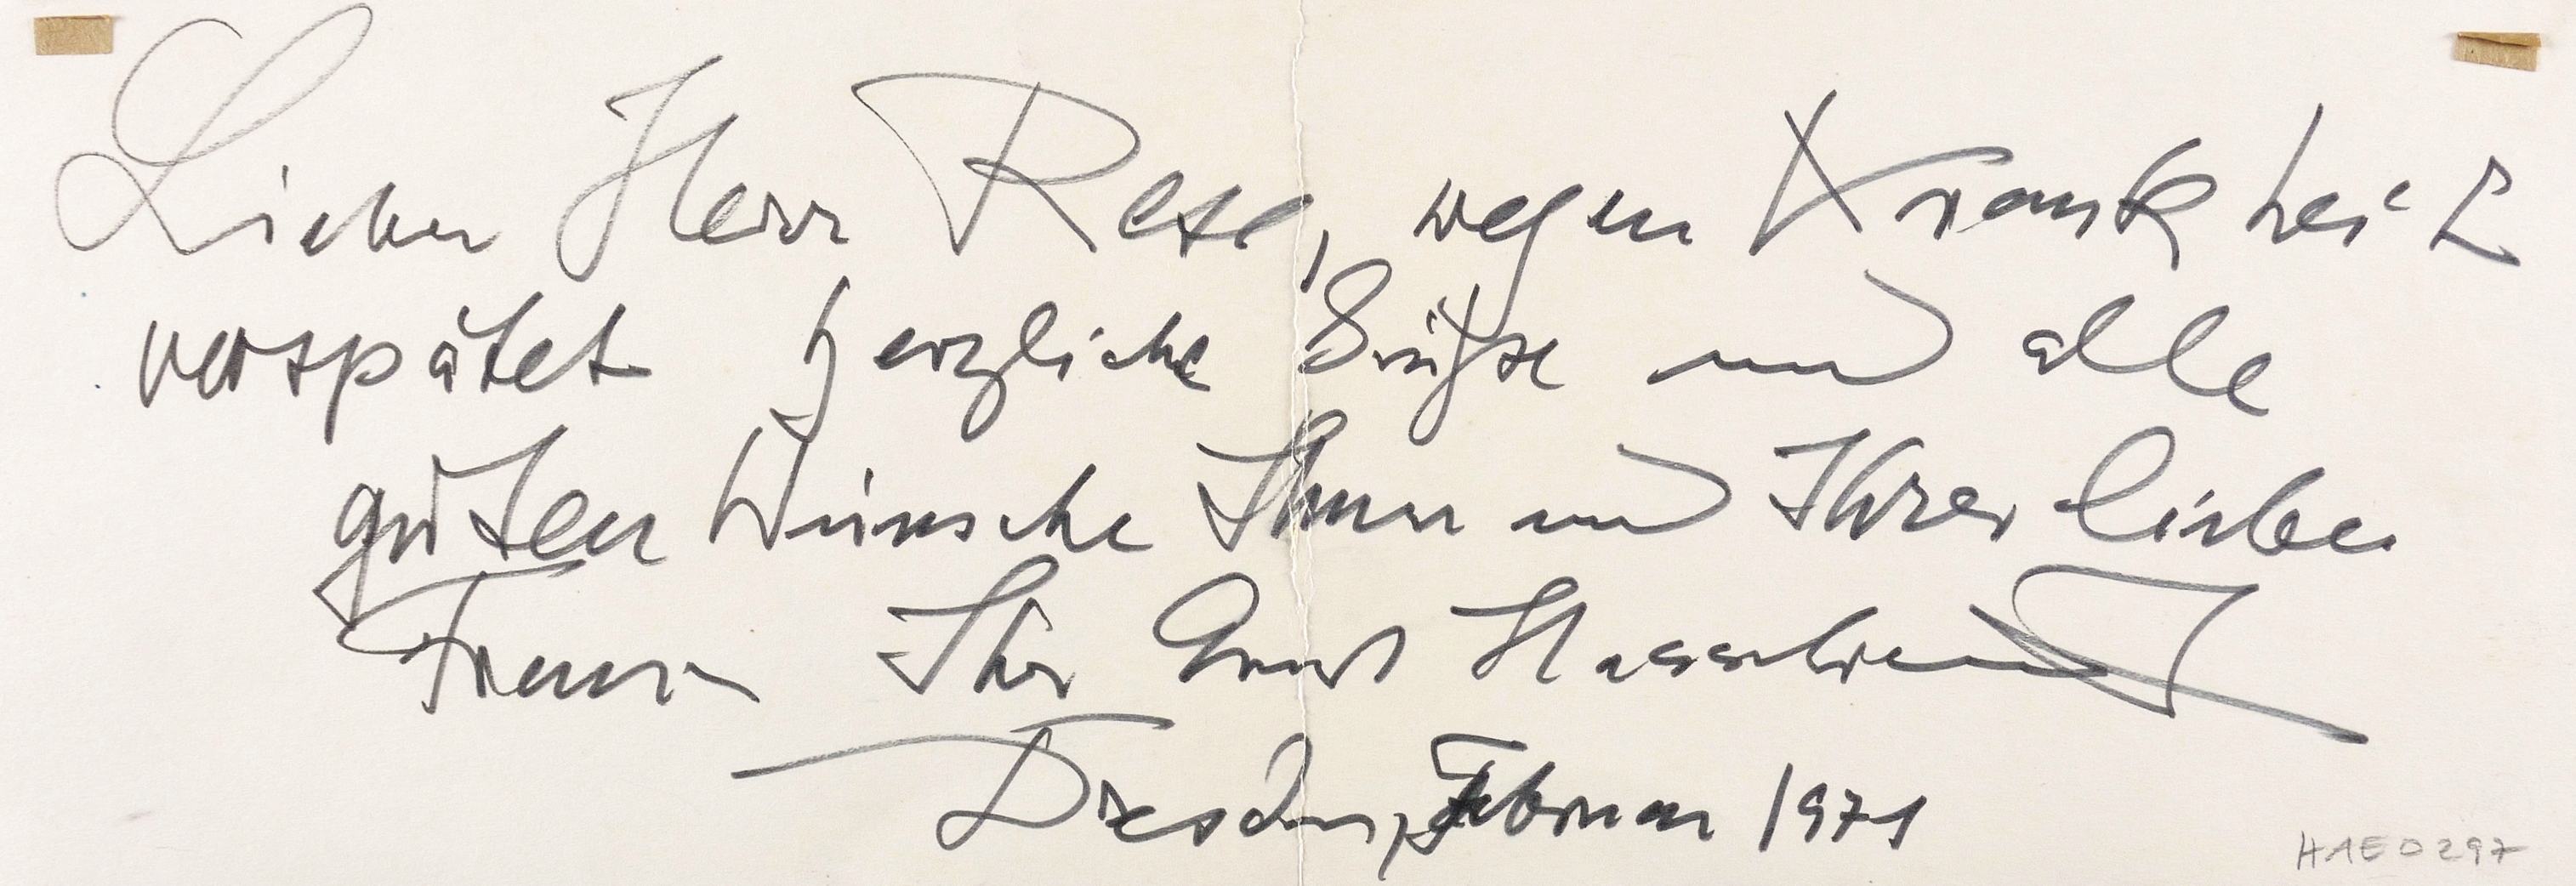 Lieber Herr Rese, wegen Krankheit
verspätet herzliche Grüße und alle
guten Wünsche Ihnen und Ihrer lieben
Frau Ihr Ernst Hassebrauk
Dresden, Februar 1971
HAE0297